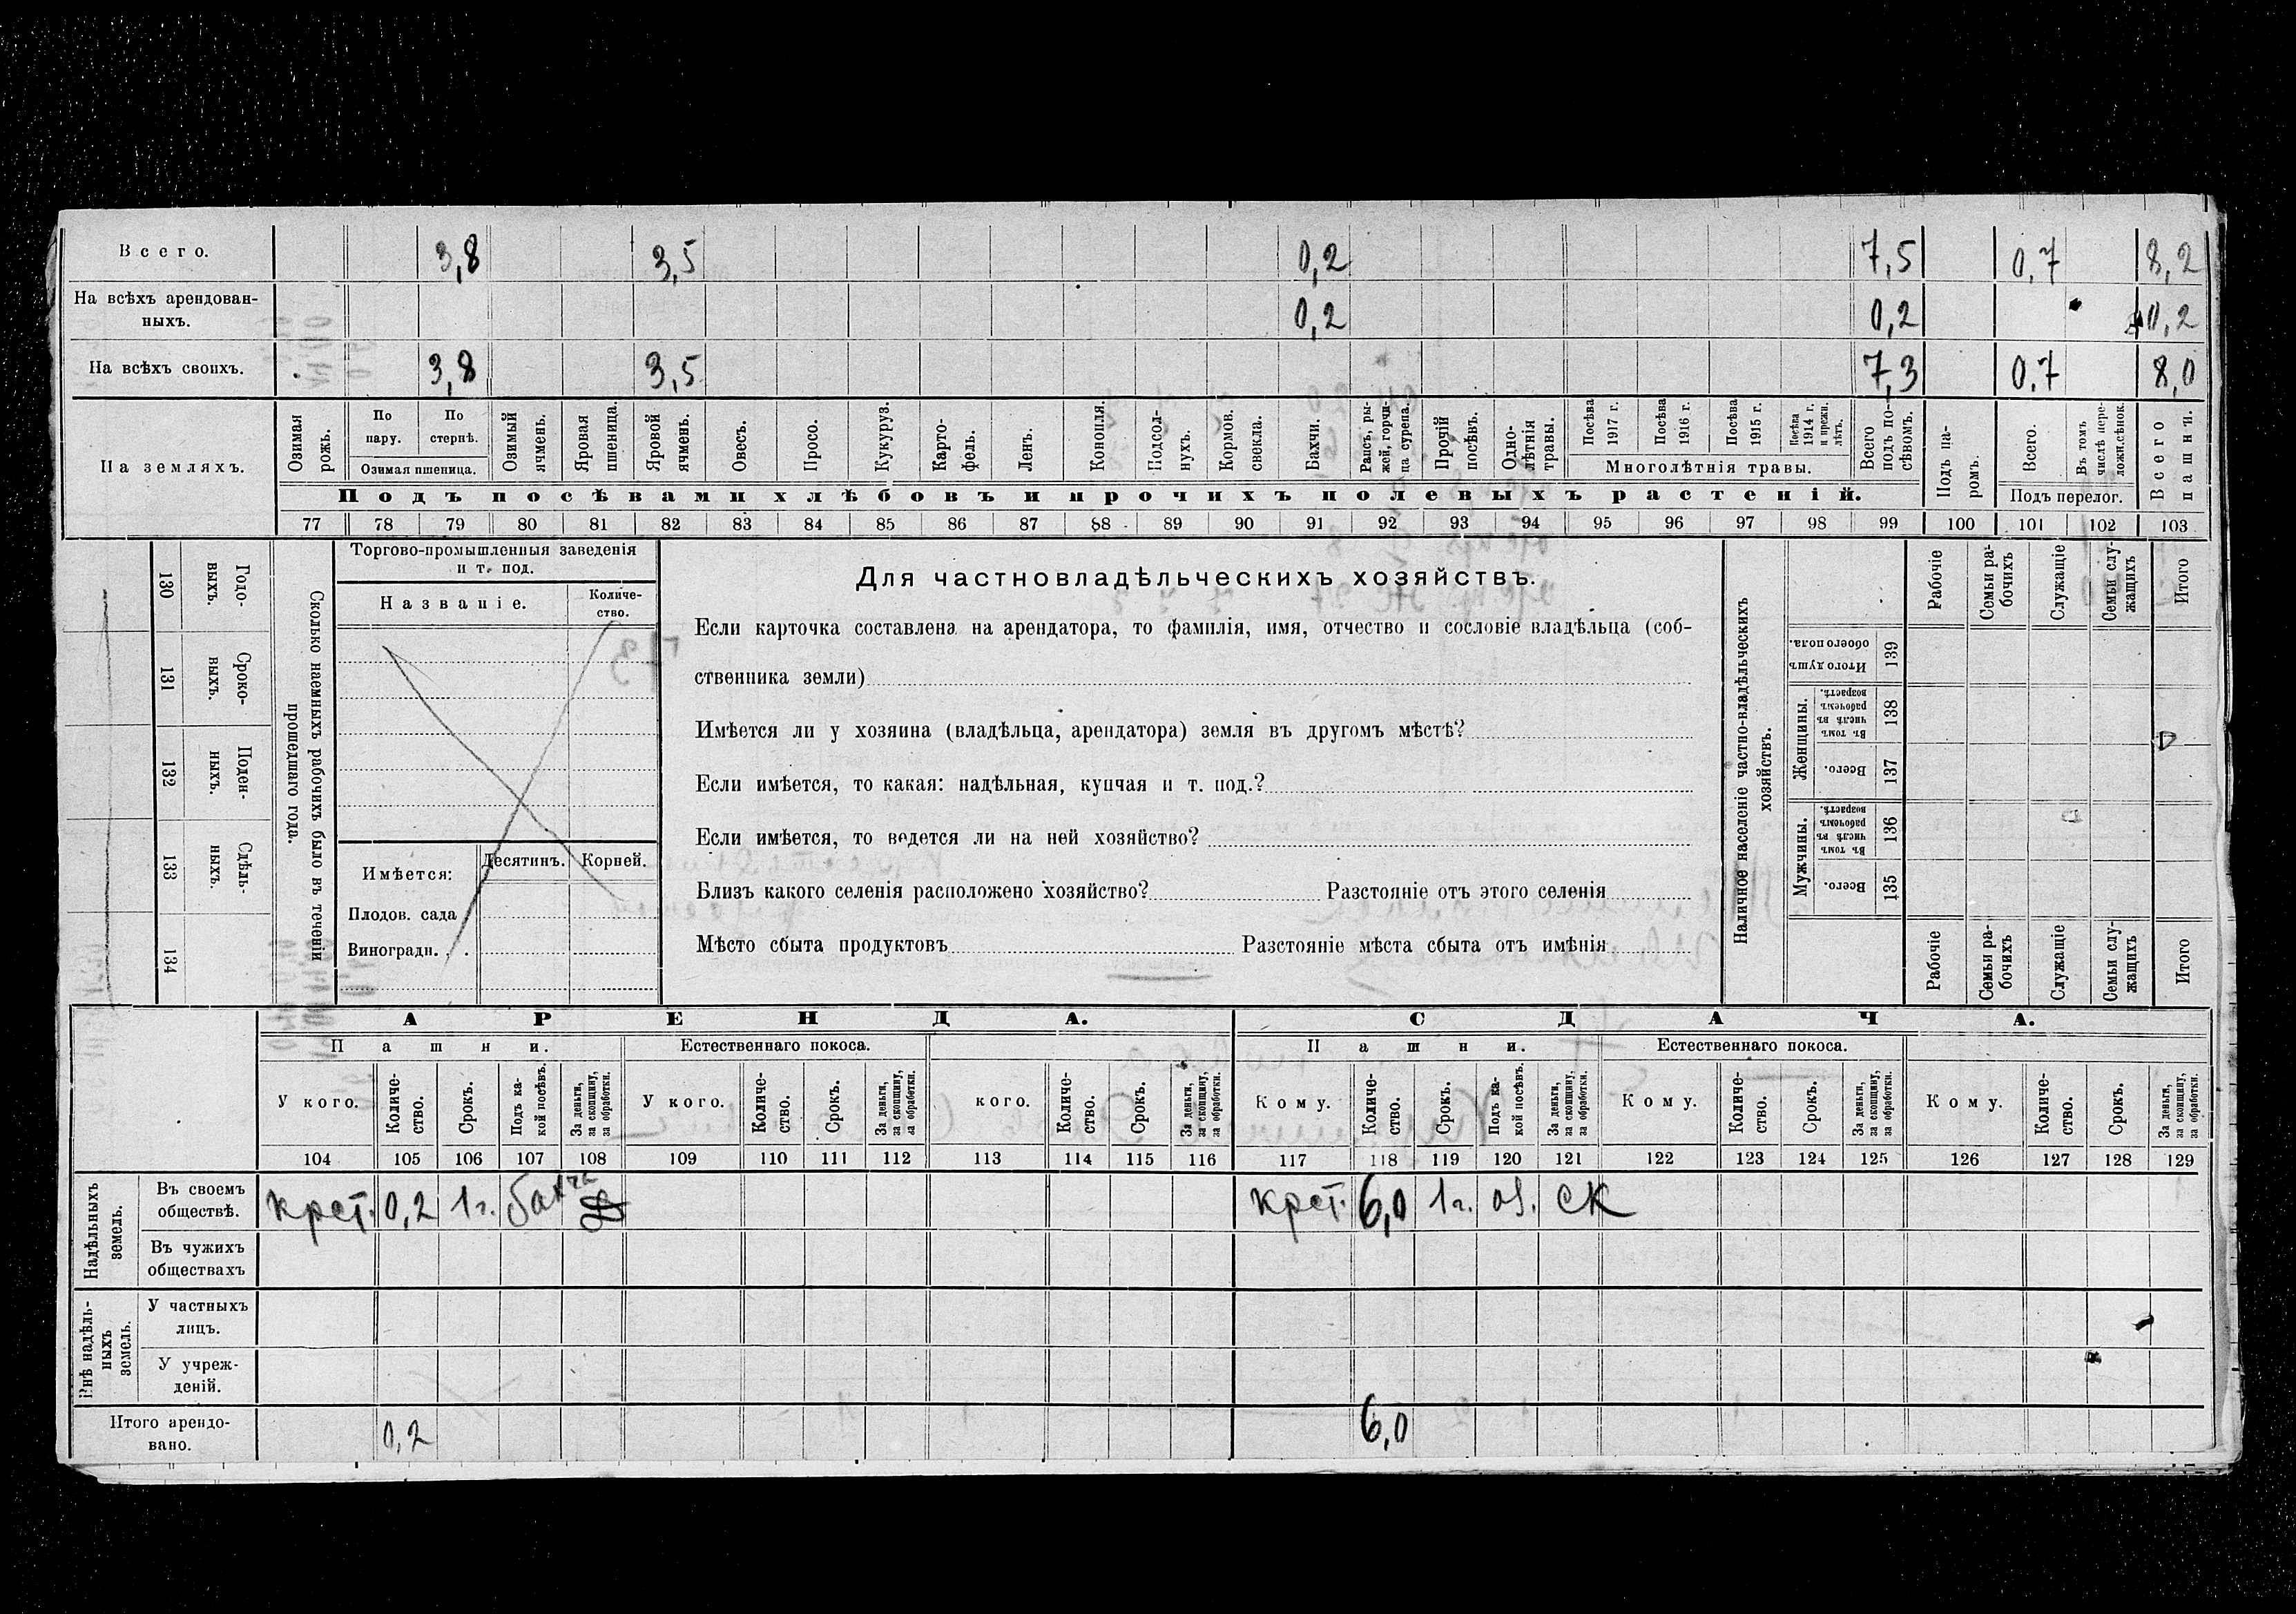 Всего. 3,8 3,5 0,2 7,5 0,7 8,2
На всѣхъ арендован-
ныхъ. 0,2 0,2 0,2
На всѣхъ своихъ. 3,8 3,5 7,3 0,7 8,0
На земляхъ.
Озимая рожь.
По пару.
По стернѣ.
Озимая пшеница.
Озимый ячмень.
Яровая пшеница.
Яровой ячмень.
Овесъ.
Просо.
Кукуруз.
Карто-
фель.
Ленъ.
Конопля.
Подсол-
нухъ.
Кормов. свекла.
Бахчи.
Рапсъ, ры-
жей, горчи-
ца сурепа.
Прочій посѣвъ.
Одно-
лѣтнія травы.
Посѣва 1917 г.
Посѣва 1916 г.
Посѣва 1915 г.
Посѣва 1914 г. и прежн. лѣтъ.
Многолѣтнія травы.
Всего подъ по-
сѣвомъ.
Подъ па-
ромъ.
Всего.
Въ томъ числѣ пере-
ложн. сѣнок.
Подъ перелог.
Всего пашни.
Подъ посѣвами хлѣбовъ и прочихъ полевыхъ растеній.
77 78 79 80 81 82 83 84 85 86 87 88 89 90 91 92 93 94 95 96 97 98 99 100 101 102 103
Годо-
выхъ. 130
Сроко-
выхъ. 131
Поден-
ныхъ. 132
Сдѣль-
ныхъ. 133
134
Сколько наемныхъ рабочихъ было въ теченіи
прошедшаго года.
Торгово-промышленныя заведенія
и т. под.
Названіе. Количе-
ство.
Имѣется: Десятинъ. Корней.
Плодов. сада
Виноградн. . .
Для частновладѣльческихъ хозяйствъ.
Если карточка составлена на арендатора, то фамилія, имя, отчество и сословіе владѣльца (соб-
ственника земли)
Имѣется ли у хозяина (владѣльца, арендатора) земля въ другомъ мѣстѣ?
Если имѣется, то какая: надѣльная, купчая и т. под.?
Если имѣется, то ведется ли на ней хозяйство?
Близъ какого селенія расположено хозяйство? Разстояніе отъ этого селенія
Мѣсто сбыта продуктовъ Разстояніе мѣста сбыта отъ имѣнія
Наличное населеніе частно-владѣльческихъ
хозяйствъ.
Рабочіе
Семьи ра-
бочихъ
Служащіе
Семьи слу-
жащихъ
Итого
Итого душъ обоего пола. 139
Женщины.
Въ томъ числѣ въ рабочемъ возрастѣ. 138
Всего. 137
Мужчины.
Въ томъ числѣ въ рабочемъ возрастѣ. 136
Всего. 135
Рабочіе
Семьи ра-
бочихъ
Служащіе
Семьи слу-
жащихъ
Итого
АРЕНДА. СДАЧА.
Пашни. Естественнаго покоса. Пашни. Естественнаго покоса.
У кого. Количе-
ство. Срокъ. Подъ ка-
кой посѣвъ. За деньги, за скопщину, за обработки.
У кого. Количе-
ство. Срокъ. За деньги, за скопщину, за обработки.
кого. Количе-
ство. Срокъ. За деньги, за скопщину, за обработки.
Кому. Количе-
ство. Срокъ. Подъ ка-
кой посѣвъ. За деньги, за скопщину, за обработки.
Кому. Количе-
ство. Срокъ. За деньги, за скопщину, за обработки.
Кому. Количе-
ство. Срокъ. За деньги, за скопщину, за обработки.
104 105 106 107 108 109 110 111 112 113 114 115 116 117 118 119 120 121 122 123 124 125 126 127 128 129
Надѣльныхъ земель.
Въ своемъ
обществѣ. крест. 0,2 1 г. бахча крест. 6,0 1 г. оз. ск
Въ чужихъ
обществахъ
Внѣ надѣль-
ныхъ земель.
У частныхъ
лицъ.
У учреж-
деній.
Итого арендо-
вано. 0,2 6,0